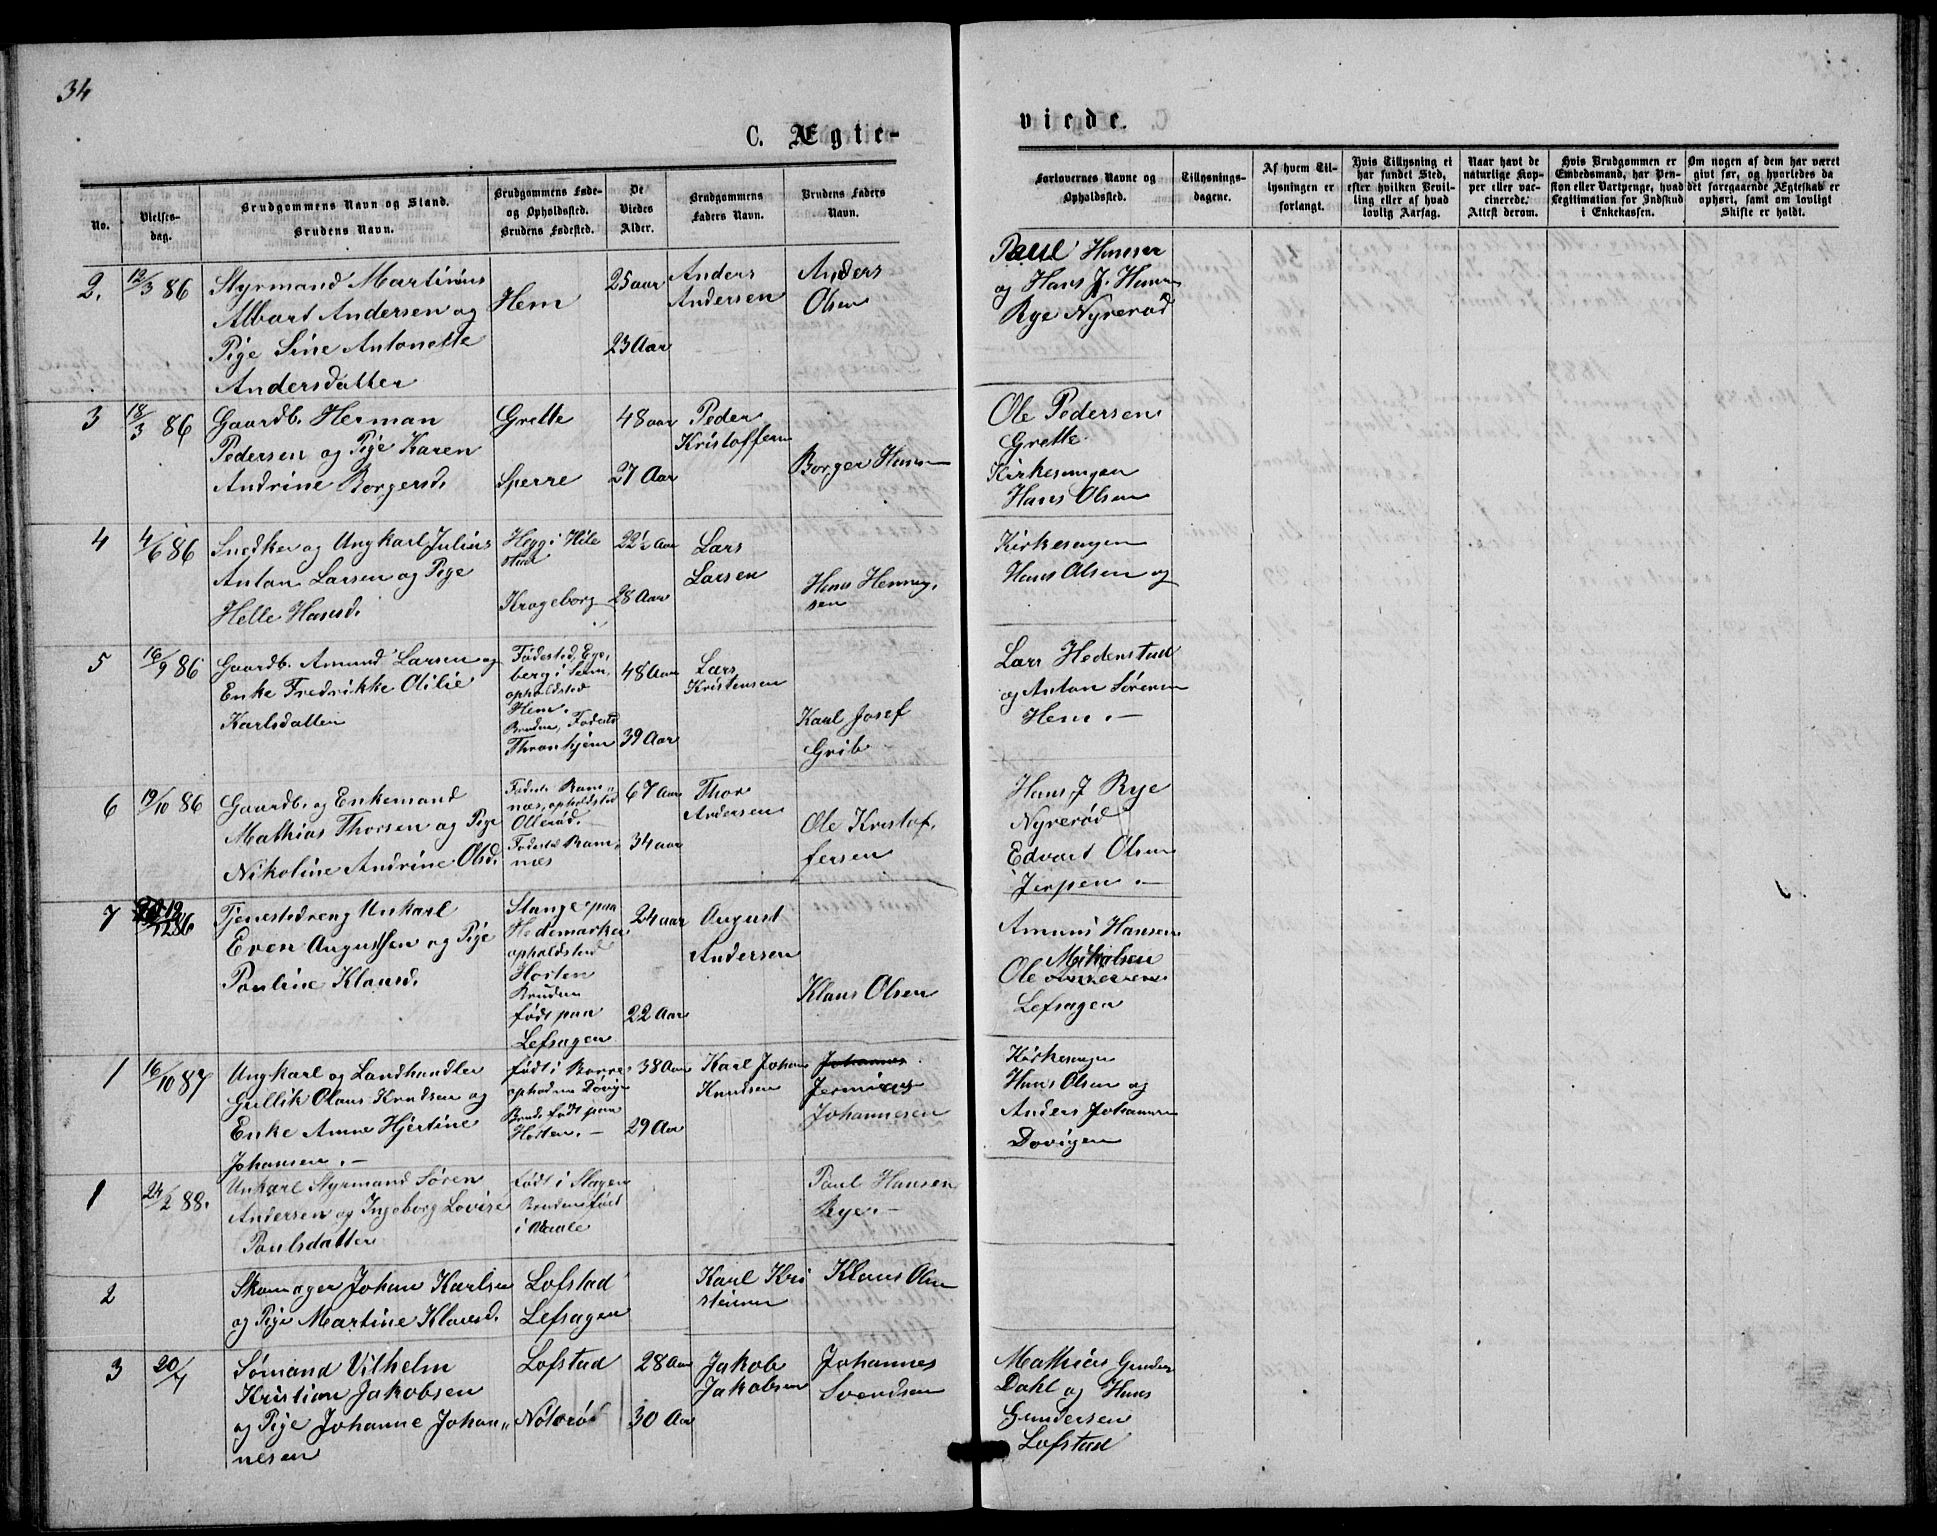 34
C. Ægte-
viede.
No.
Vielses-
dag.
Brudgommens Navn og Stand.
Brudens Navn.
Brudgommens Føde-
og Opholdssted.
Brudens Fødested.
De
Viedes
Alder.
Brudgommens
Faders Navn.
Brudens Faders
Navn.
Forlovernes Navne og
Opholdssted.
Tillysnings-
dagene.
Af hvem Til-
lysningen er
forlangt.
Hvis Tillysning ei
har fundet Sted,
efter hvilken Bevil-
ling eller af hvad
lovlig Aarsag.
Naar havt de
naturlige Kop-
per eller vac-
cinerede.
Attest derom.
Hvis Brudgommen er
Embedsmand, har Pen-
sion eller Vartpenge, hvad
Legitimation for Indskud
i Enkekassen.
Om nogen af dem har været
givt før, og hvorledes da
det foregaaende Ægteskab er
ophørt, samt om lovligt
Skifte er holdt.
2. 12/3 86
Styrmand Martinius
Albart Andersen og
Pige Sine Antonette
Andersdatter
Hem
25 aar
23 Aar
Anders
Andersen
Anders
Olsen
Paul Hansen
og Hans J. Hansen
Rye Nyrerød
3 18/3 86
Gaardb. Herman
Pedersen og Pige Karen
Andrine Borgersd.
Grette
Sperre
48 aar
27 Aar
Peder
Kristoffersen
Borger Hansen
Ole Pedersen
Grette
Kirkesangen
Hans Olsen
4 4/6 86
Snedker og Ungkarl Julius
Anton Larsen og Pige
Helle Hansd.
Hegg i Hile
stad
Krogeborg
22½ Aar
28 Aar
Lars
Larsen
Hans Henning
sen
Kirkesangen
Hans Olsen og
5 16/9 86
Gaardb. Amund Larsen og
Enke Fredrikke Otilie
Karlsdatter
Fødested Ege
berg i Sem,
opholdsted
Hem.
Bruden Fødested
Thronhjem
48 Aar
39 Aar
Lars
Kristensen
Karl Josef
Grib
Lars Hedenstad
og Anton Sörensen
Hem. —
6 19/10 86
Gaardb. og Enkemand
Mathias Thorsen og Pige
Nikoline Andrine Olsd.
Födest. Ram
næs, opholdsted
Ollerød. —
Fødested Ram
næs
67 Aar
34 aar
Thor
Andersen
Ole Kristof
fersen
Hans J Rye
Nyrerød
Edvart Olsen
Jerpen. —
7 19/12 86
Tjenestedreng Unkarl
Even Augustsen og Pige
Pauline Klausd.
Stange paa
Hedemarken
opholdsted
Horten
Bruden
født paa
Lefsagen
24 aar
22 Aar
August
Andersen
Klaus Olsen
Amund Hansen
Mikalsen
Ole
Lefsagen
1 16/10 87
Ungkarl og Landhandler
Gullik Olaus Knudsen og
Enke Anne Hjertine
Johansen. —
født i Borre
ophold paa Dövigen
Brud født paa
Horten. —
38 Aar
29 Aar
Karl Johan
Knudsen
Johannes
Jermias
Johannesen
Kirkesanger
Hans Olsen og
Anders Johannsen
Dovigen
1 24/2 88.
Unkarl Styrmand Søren
Andersen og Ingeborg Lovise
Paulsdatter
født i Slagen
Bruden født
i Vaale
Paul Hansen
Rye. —
2
Skomager Johan Karlsen
og Pige Martine Klausd.
Lofstad
Lefsagen
Karl Kri
stensen
Klaus Olsen
3 20/7
Sømand Vilhelm
Kristian Jakobsen
og Pige Johanne Johan„
nesen
Lofstad
Nøterø
28 Aar
30 Aar
Jakob
Jakobsen
Johannes
Svendsen
Mathias Gundersen
Dahl og Hans
Gundersen
Lofstad